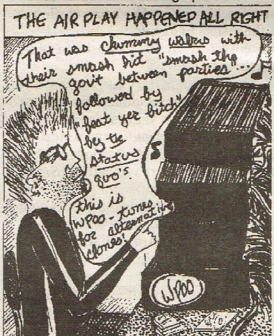 THE AIR PLAY HAPPENED ALL RIGHT
That was chummy walrus with
their smash hit "smash the
gov't between parties...
followed by
"beat yer bitch"
by the
status
quo's
this is
WPOO - tunes
for alternative
clones!
WPOO